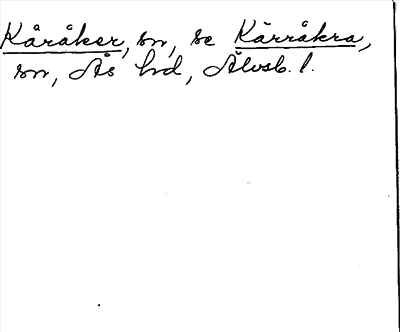 Kåråker, sn, se Kärråkra,
sn, Ås hd, Älvsb. l.